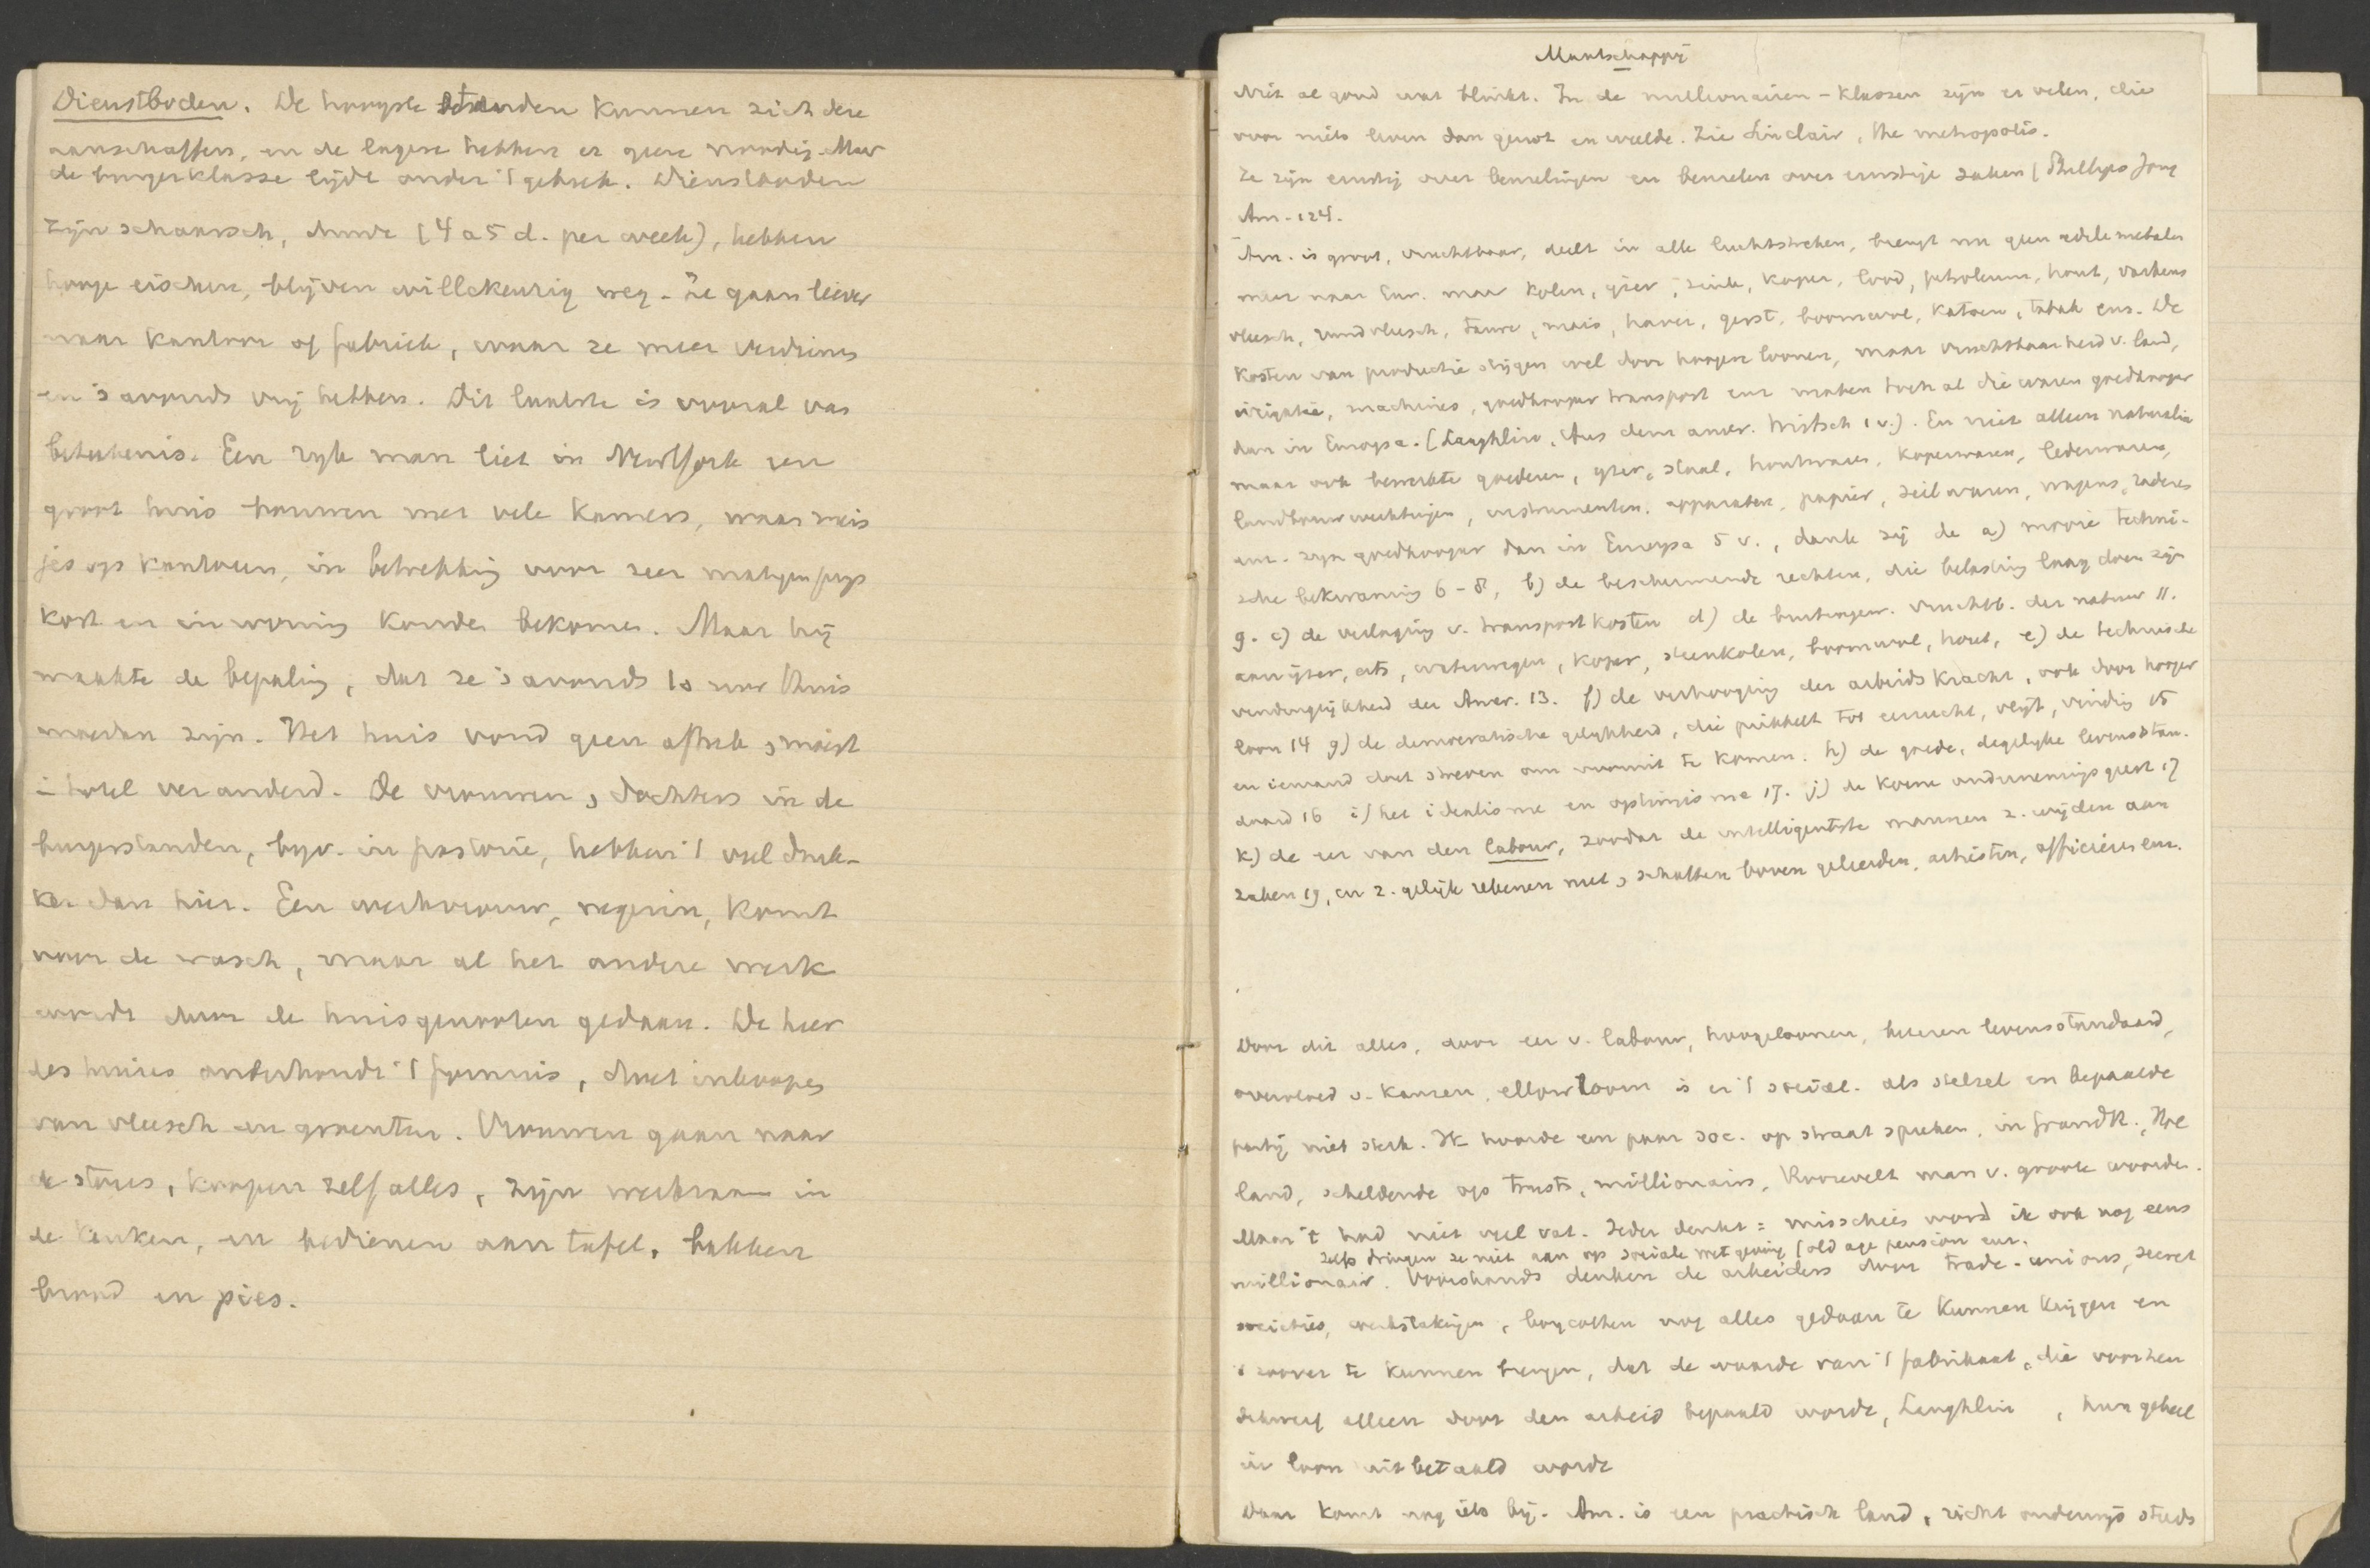 Dienstboden. De hoogste standen kunnen zich deze
aanschaffen, en de lagere hebben er geene noodig. Maar
de burgerklasse lijdt onder 't gebrek. Dienstboden
zijn schaarsch, duur (4 a 5 d. per week), hebben
hooge eischen, blijven willekeurig weg. Ze gaan liever
naar kantoor of fabriek, waar ze meer verdienen
en 's avonds vrij hebben. Dit laatste is vooral van
beteekenis. Een ryk man liet in NewYork een
groot huis bouwen met vele kamers, waar meis
jes op kantoren, in betrekking voor zeer matigen prijs
kost en inwoning konden bekomen. Maar hij
maakte de bepaling, dat ze 's avonds 10 uur thuis
moesten zijn. Het huis vond geen aftrek, moest
i hotel veranderd. De vrouwen, dochters in de
burgerstanden, byv. in pastorie, hebben 't veel druk-
ker dan hier. Een werkvrouw, negerin, komt
voor de wasch, maar al het andere werk
wordt door de huisgenooten gedaan. De heer
des huizes onderhoudt 't fournuis, doet inkoopen
van vleesch en groenten. Vrouwen gaan naar
de stores, koopen zelf alles, zijn werkzaam in
de keuken, en bedienen aan tafel, bakken
brood en pies.
Maatschappij
Niet al goud wat blinkt. In de millionairen-klassen zijn er velen, die
voor niets leven dan genot en weelde. Zie Sinclair, the metropolis.
Ze zijn ernstig over beuzelingen en beuzelen over ernstige zaken (Phillips Jong
Am. 124.
Am. is groot, vruchtbaar, deelt in alle luchtstreken, brengt nu geen edele metalen
meer naar Eur. maar kolen, ijzer, zink, koper, lood, petroleum, hout, varkens
vleesch, rundvleesch, tarwe, mais, haver, gerst, boomwol, katoen, tabak enz. De
kosten van productie stijgen wel door hoogere loonen, maar vruchtbaarheid v. land,
irrigatie, machines, goedkooper transport enz maken toch al die waren goedkooper
dan in Europa. (Laughlin, Aus dem amer. Wirtsch 1 v.). En niet alleen naturalia
maar ook bewerkte goederen, yzer, staal, houtwaren, koperwaren, lederwaren,
landbouwwerktuigen, instrumenten, apparaten, papier, zeilwaren, wagens, raderen
enz. zijn goedkooper dan in Europa 5 v., dank zij de a) mooie techni-
sche bekwaming 6-8, b) de beschermende rechten, die belasting laag doen zijn
9. c) de verlaging v. transportkosten d) de buitengew. vruchtb. der natuur 11.
aan ijzer, erts, waterwegen, koper, steenkolen, boomwol, hout, e) de technische
vindingrijkheid der Amer. 13. f) de verhooging der arbeidskracht, ook door hooger
loon 14 g) de democratische gelijkheid, die prikkelt tot eerzucht, vlijt, vinding 15
en iemand doet streven om vooruit te komen. h) de goede, degelyke levensstan-
daard 16 i) het idealisme en optimisme 17. j) de koene ondernemingsgeest 17
k) de eer van den labour, zoodat de intelligentste mannen z. wijden aan
zaken 19, en z. gelijk rekenen met, schatten boven geleerden, artisten, officieren enz.
Door dit alles, door eer v. labour, hooge loonen, beteren levensstandaard,
overvloed v. kansen, ellowroom is er 't social. als stelsel en bepaalde
partij niet sterk. Ik hoorde een paar soc. op straat spreken, in Grand R., Hol
land, scheldende op trusts, millionairs, Roosevelt man v. groote woorden.
Maar 't had niet veel vat. Ieder denkt: misschien word ik ook nog eens
zelfs dringen ze niet aan op sociale wetgeving (old age pension enz.
millionair. Voorshands denken de arbeiders door trade-unions, secret
societies, werkstakingen, boycotten nog alles gedaan te kunnen krijgen en
't zoover te kunnen brengen, dat de waarde van 't fabrikaat, die voor hen
alleen door den arbeid bepaald wordt, Laughlin , hun geheel
in loon uitbetaald worde
Daar komt nog iets bij. Am. is een practisch land, richt onderwijs steeds